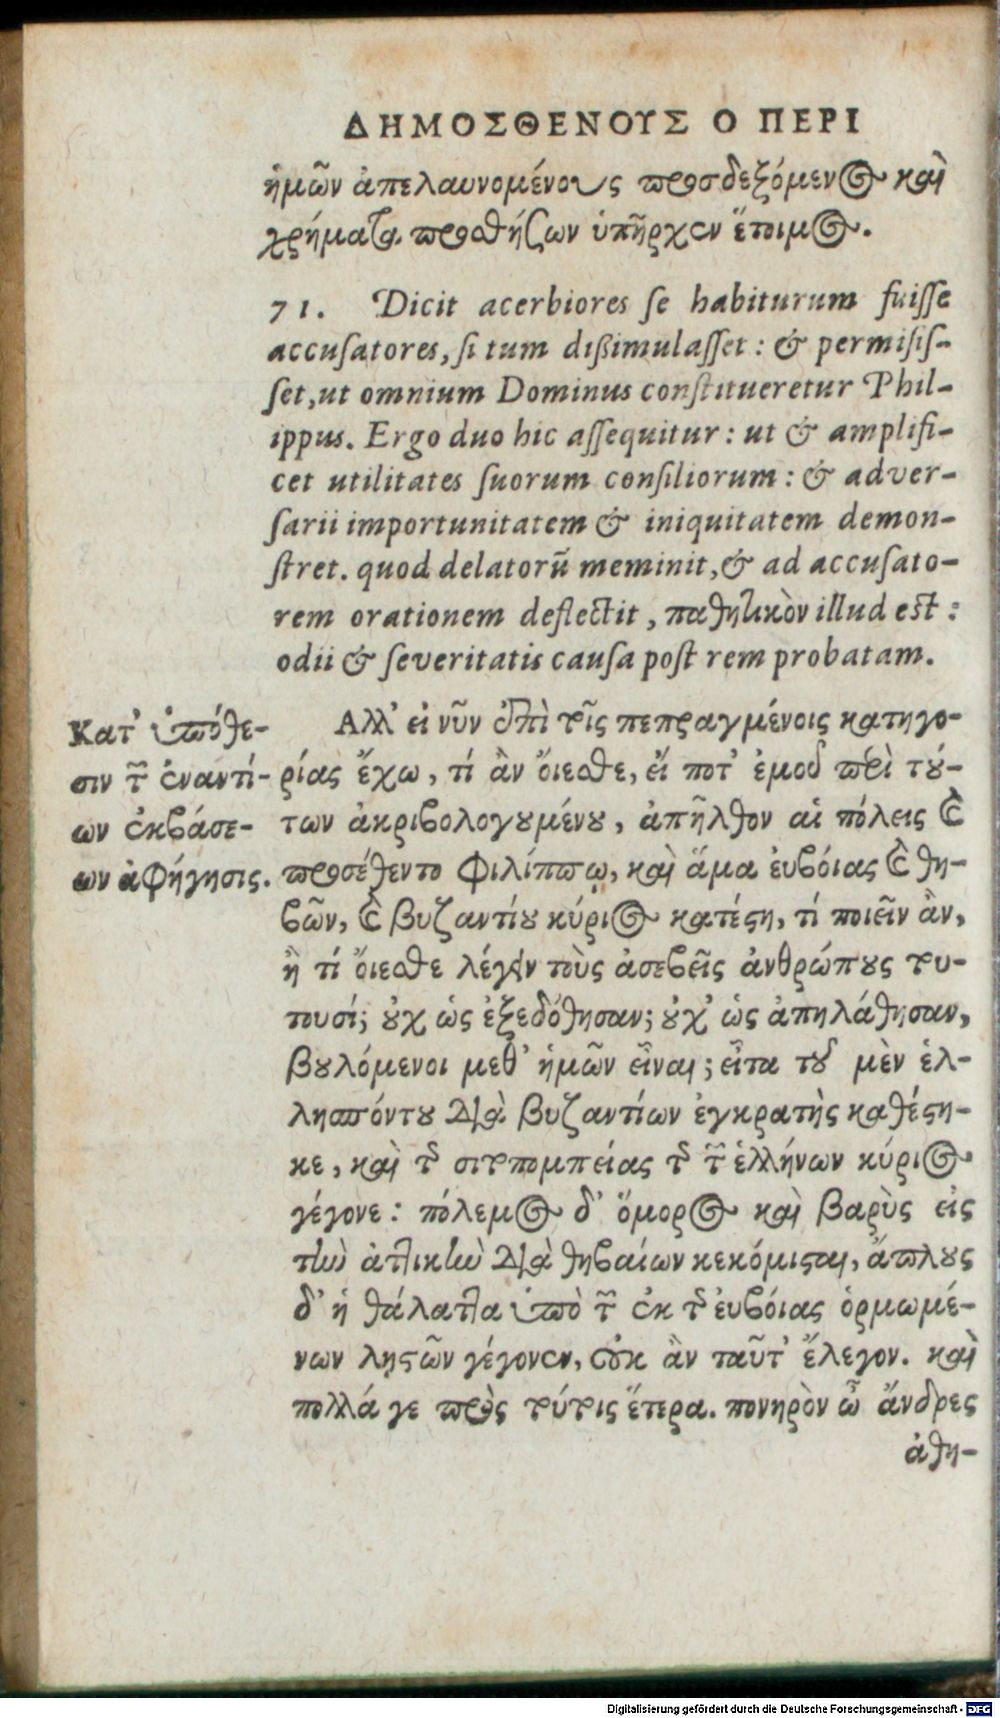 ΔΗΜΟΣΘΕΝΟΥΣ Ο ΠΕΡΙ
ἡμῶν ἀπελαυνομένους προσδεξόμενος καὶ
χρήματα προσθήσων ὑπῆρχεν ἕτοιμος.
71. Dicit acerbiores se habiturum fuisse
accusatores, si tum dißimulasset: & permisis-
set, ut omnium Dominus constitueretur Phil-
ippus. Ergo duo hic assequitur: ut & amplifi-
cet utilitates suorum consiliorum: & adver-
sarii importunitatem & iniquitatem demon-
stret. quod delatorū meminit, & ad accusato-
rem orationem deflectit, παθητικὸν illud est:
odii & severitatis causa post rem probatam.
Κατ' ὑπόθε-
σιν τῶν ἐναντί-
ων ἐκβάσε-
ων ἀφήγησις.
Αλλ' εἰ νῦν ἐπὶ τοῖς πεπραγμένοις κατηγο-
ρίας ἔχω, τί ἂν ὄιεσθε, εἴ ποτ' ἐμοῦ περὶ τού-
των ἀκριβολογουμένου, ἀπῆλθον αἱ πόλεις καὶ
προσέθεντο Φιλίππῳ, καὶ ἅμα ἐυβόιας καὶ θη-
βῶν, καὶ βυζαντίου κύριος κατέστη, τί ποιεῖν ἂν,
ἢ τί ὄιεσθε λέγειν τοὺς ἀσεβεῖς ἀνθρώπους του-
τουσί; οὐχ ὡς ἐξεδόθησαν; οὐχ' ὡς ἀπηλάθησαν,
βουλόμενοι μεθ' ἡμῶν εἶναι; εἶτα τοῦ μὲν ἑλ-
λησπόντου διὰ βυζαντίων ἐγκρατὴς καθέστη-
κε, καὶ τῆς σιτοπομπείας τῆς τῶν ἑλλήνων κύριος
γέγονε: πόλεμος δ' ὅμορος καὶ βαρὺς εἰς
τὴν ἀττικὴν διὰ θηβαίων κεκόμισται, ἄπλους
δ' ἡ θάλαττα ὑπὸ τῶν ἐκ τῆς ἐυβόιας ὁρμωμέ-
νων λῃστῶν γέγονεν, οὐκ ἂν ταῦτ' ἔλεγον. καὶ
πολλά γε πρὸς τούτοις ἕτερα. πονηρὸν ὦ ἄνδρες
ἀθη-
Digitalisierung gefördert durch die Deutsche Forschungsgemeinschaft - DFG